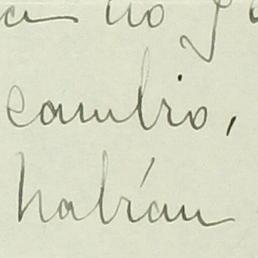 no
cambio,
habrán